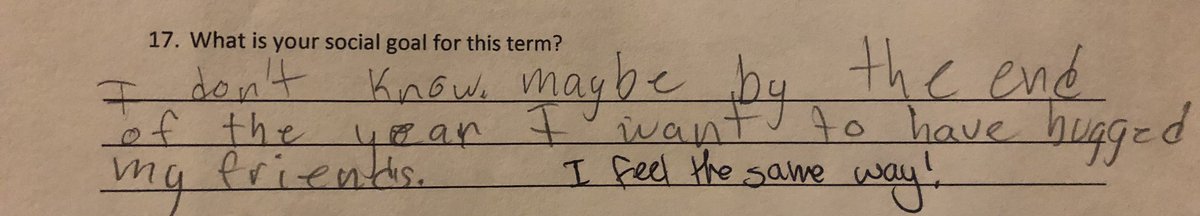 17. What is your social goal for this term?
I don't know. maybe by the end
of the year I want to have hugged
my friends. I feel the same way!